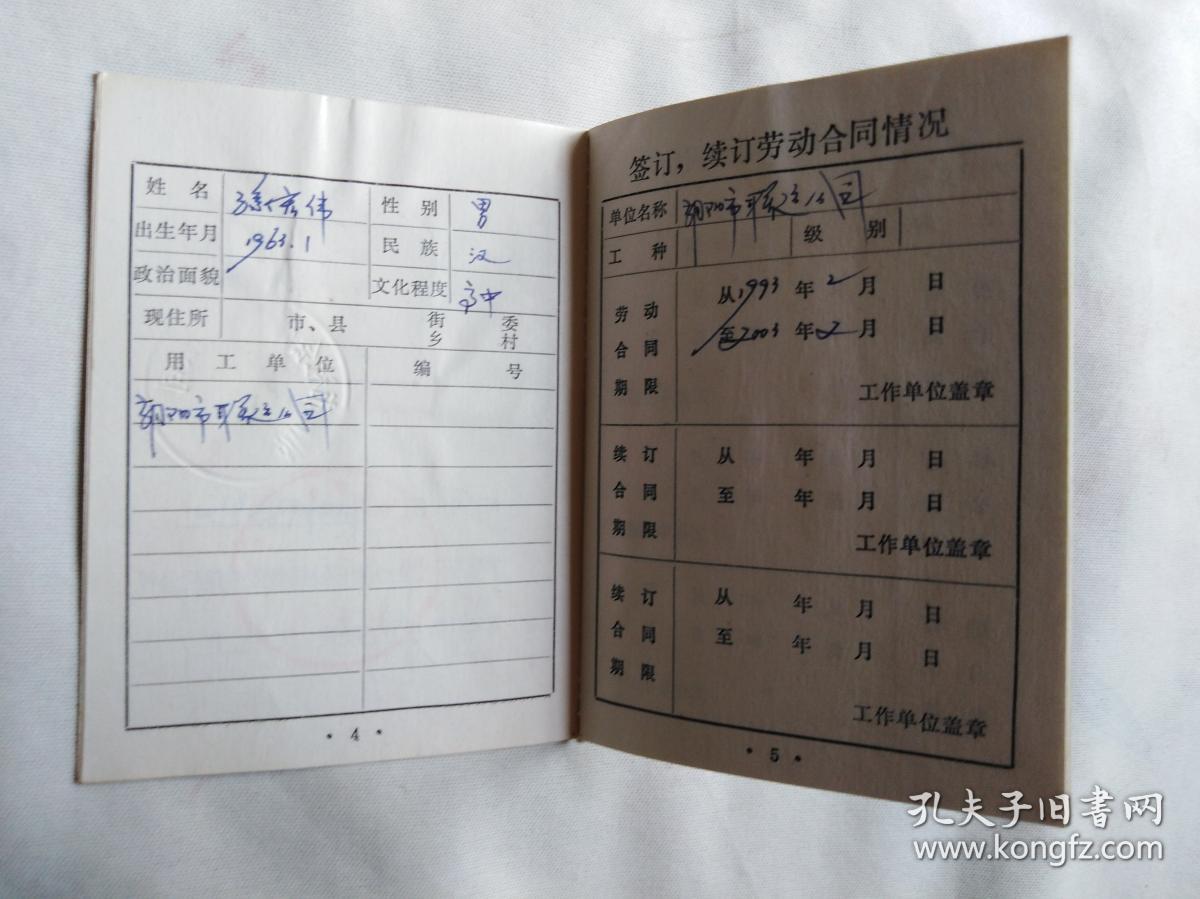 姓名 孙宏伟 性别 男
出生年月 1963.1 民族 汉
政治面貌 文化程度 高中
现住所 市、县 街乡 委村
用工单位 编号
朝阳市联运公司
· 4 ·
签订，续订劳动合同情况
单位名称 朝阳市联运公司
工种 级别
劳动合同期限
从1993年2月 日
至2003年2月 日
工作单位盖章
续订合同期限
从 年 月 日
至 年 月 日
工作单位盖章
续订合同期限
从 年 月 日
至 年 月 日
工作单位盖章
· 5 ·
孔夫子旧书网
www.kongfz.com